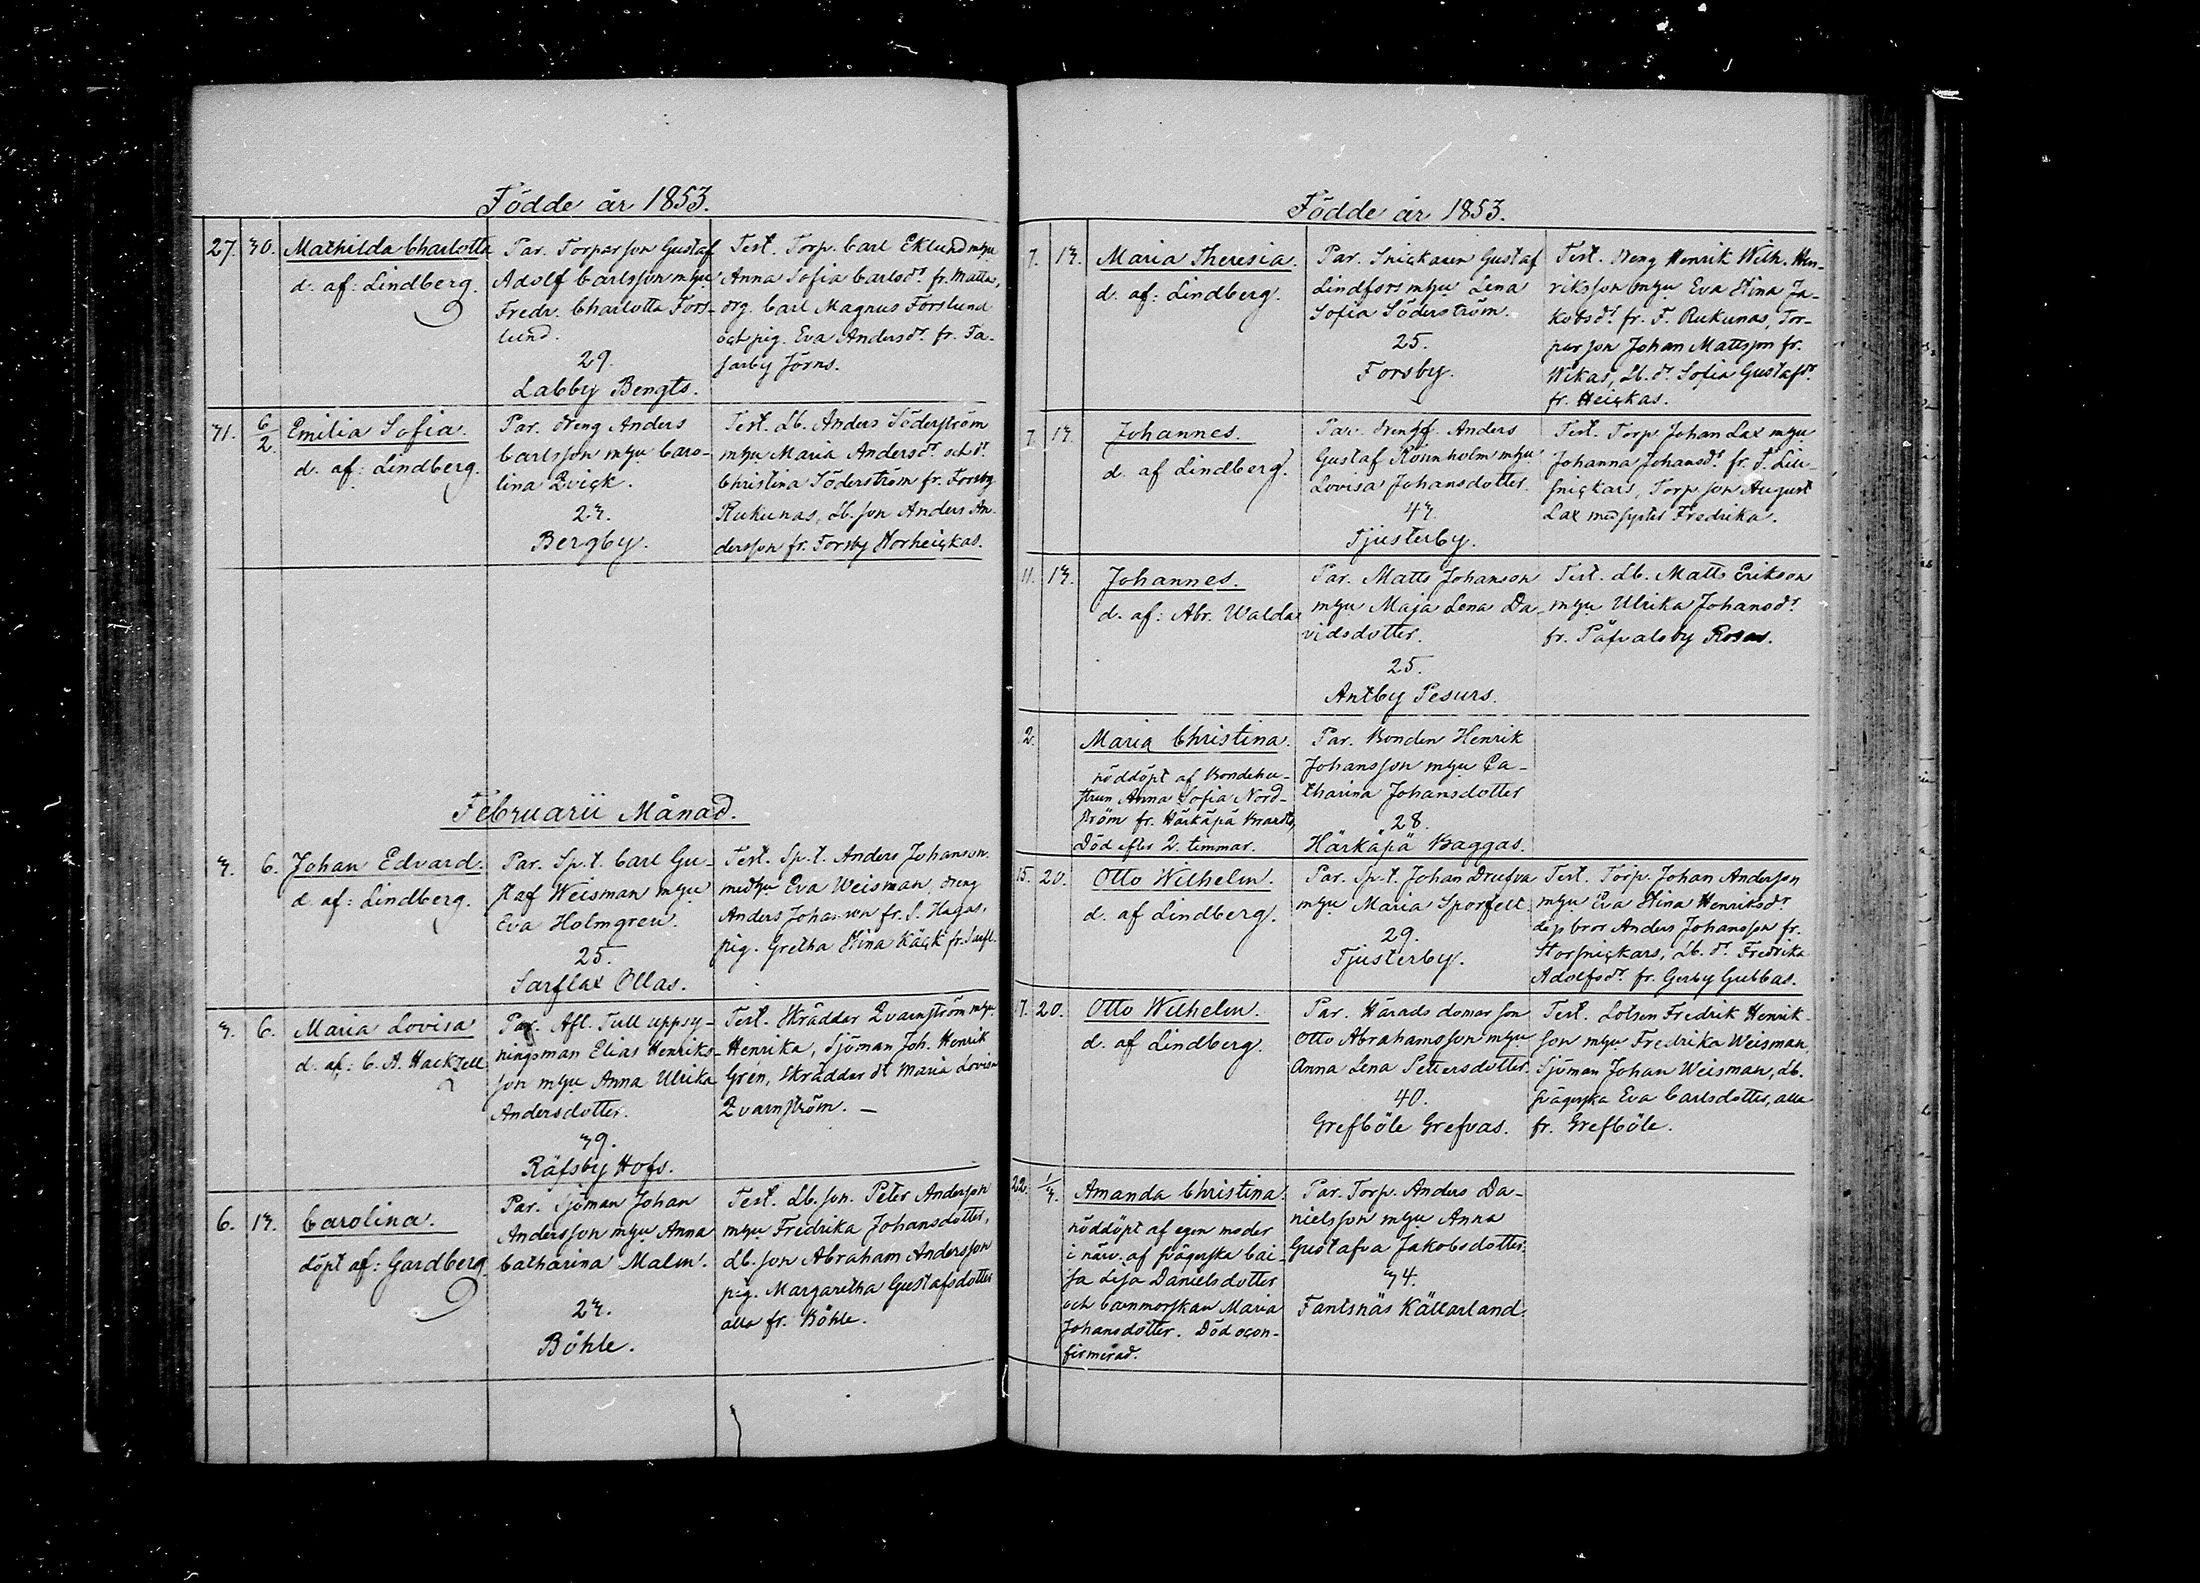 Födde år 1853.
27. 30. Mathilda Charlotta
d. af: Lindberg.
Par. Torparson Gustaf
Adolf Carlsson mhu
Fredr. Charlotta Fors-
lund.
29.
Labby Bengts.
Test. Torp. Carl Eklund mhu
Anna Sofia Carlsdr. fr. Mattas,
drg. Carl Magnus Forslund
och pig. Eva Andersdr. fr. Ta-
sarby Jörns.
31. 6/2. Emilia Sofia.
d. af: Lindberg.
Par. dreng Anders
Carlsson mhu Caro-
lina Qvick.
23.
Bergby.
Test. Lb. Anders Söderström
mhu Maria Andersdr och dr
Christina Söderström fr. Forsby
Rukunas, Lb. son Anders An-
dersson fr. Forsby Norheickas.
Februarii Månad.
3. 6. Johan Edvard.
d. af: Lindberg.
Par. Sp.t. Carl Gu-
staf Weisman mhu
Eva Holmgren.
25.
Sarflax Ollas.
Test. Sp.t. Anders Johanson
medhu Eva Weisman, dreng
Anders Johanson fr. S. Hagas,
pig. Gretha Stina Käck fr. Sarfl.
3. 6. Maria Lovisa
d. af: C. A. Hackzell
Par. Afl. Tulluppsy-
ningsman Elias Henriks-
son mhu Anna Ulrika
Andersdotter.
39.
Räfsby Hofs.
Test. Skräddar Qvarnström mhu
Henrika, Sjöman Joh. Henrik
Grén, Skräddar dr Maria Lovisa
Qvarnström. —
6. 13. Carolina.
döpt af: Gardberg.
Par. Sjöman Johan
Andersson mhu Anna
Catharina Malm.
23.
Böhle.
Test. Lb. son. Peter Anderson
mhu Fredrika Johansdotter,
Lb. son Abraham Andersson
pig. Margaretha Gustafsdotter
alla fr. Böhle.
Födde år 1853.
7. 13. Maria Theresia.
d. af: Lindberg.
Par. Snickaren Gustaf
Lindfors mhu Lena
Sofia Söderström.
25.
Forsby.
Test. dreng Henrik Wilh. Hen-
riksson mhu Eva Stina Ja-
kobsdr. fr. F. Rukunas, Tor-
par son Johan Mattsson fr.
Wikas, Lb. dr. Sofia Gustafsdr.
fr. Heickas.
7. 13. Johannes.
d. af Lindberg.
Par. drengf. Anders
Gustaf Rönnholm mhu
Lovisa Johansdotter.
43.
Tjusterby.
Test. Torp. Johan Lax mhu
Johanna Johansdr. fr. S. Lill
snickars, Torp son August
Lax med syster Fredrika.
11. 13. Johannes.
d. af: Abr. Walda
Par. Matts Johanson
mhu Maja Lena Da-
vidsdotter.
25.
Antby Pesurs.
Test. Lb. Matts Erikson
mhu Ulrika Johansdr
fr. Påfvalsby Rosas.
2. Maria Christina.
nöddöpt af Bondehu-
strun Anna Sofia Nord-
ström fr. Härkäpä Knarts,
Död efter 2. timmar.
Par. Bonden Henrik
Johansson mhu Ca-
tharina Johansdotter
28.
Härkäpä Baggas.
15. 20. Otto Wilhelm.
d. af Lindberg.
Par. Sp.t. Johan Drufva
mhu Maria Sporfelt
29.
Tjusterby.
Test. Torp. Johan Anderson
mhu Eva Stina Henriksdr
dess bror Anders Johansson fr.
Storsnickars, Lb. dr. Fredrika
Adolfsdr. fr. Gerby Gubbas.
17. 20. Otto Wilhelm.
d. af Lindberg.
Par. Härads domar son
Otto Abrahamsson mhu
Anna Lena Pettersdotter.
40.
Grefböle Grefvas.
Test. Lotsen Fredrik Henrik-
son mhu Fredrika Weisman,
Sjöman Johan Weisman, Lb.
svägerska Eva Carlsdotter, alla
fr. Grefböle.
22. 1/3. Amanda Christina.
nöddöpt af egen moder
i närv. af svägerska Cai-
sa Lisa Danielsdotter
och barnmorskan Maria
Johansdotter. Död ocon-
firmerad.
Par. Torp. Anders Da-
nielsson mhu Anna
Gustafva Jakobsdotter
34.
Fantsnäs Källarland.